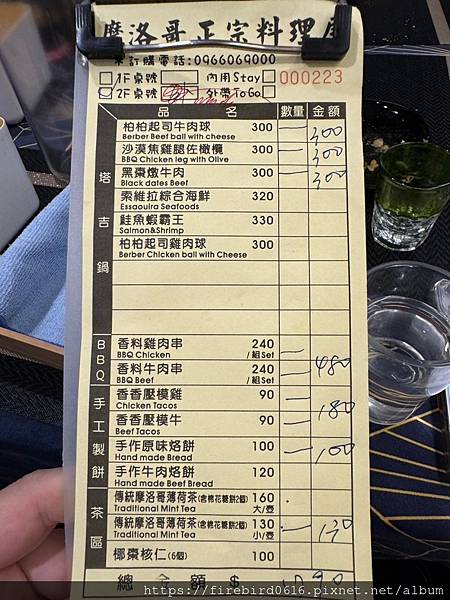 摩洛哥正宗料理屋
訂購電話:0966069000
1F桌號 內用Stay 000223
2F桌號 外帶ToGo
品名 數量 金額
塔吉鍋
柏柏起司牛肉球 300 一 300
Berber Beef ball with cheese
沙漠焦雞腿佐橄欖 300 一 300
BBQ Chicken leg with Olive
黑棗燉牛肉 300 一 300
Black dates Beef
索維拉綜合海鮮 320
Essaouira Seafoods
鮭魚蝦霸王 330
Salmon&Shrimp
柏柏起司雞肉球 300
Berber Chicken ball with Cheese
BBQ
香料雞肉串 240
BBQ Chicken /組Set
香料牛肉串 240 480
BBQ Beef /組Set
手工製餅
香香壓模雞 90
Chicken Tacos
香香壓模牛 90 180
Beef Tacos
手作原味烙餅 100 一 100
Hand made Bread
手作牛肉烙餅 120
Hand made Beef Bread
茶區
傳統摩洛哥薄荷茶(含棉花糖餅2個) 160
Traditional Mint Tea 大/壺
傳統摩洛哥薄荷茶(含棉花糖餅2個) 130 一 130
Traditional Mint Tea 小/壺
椰棗核仁(6個) 100
總金額 $
https://firebird0616.pixnet.net/album